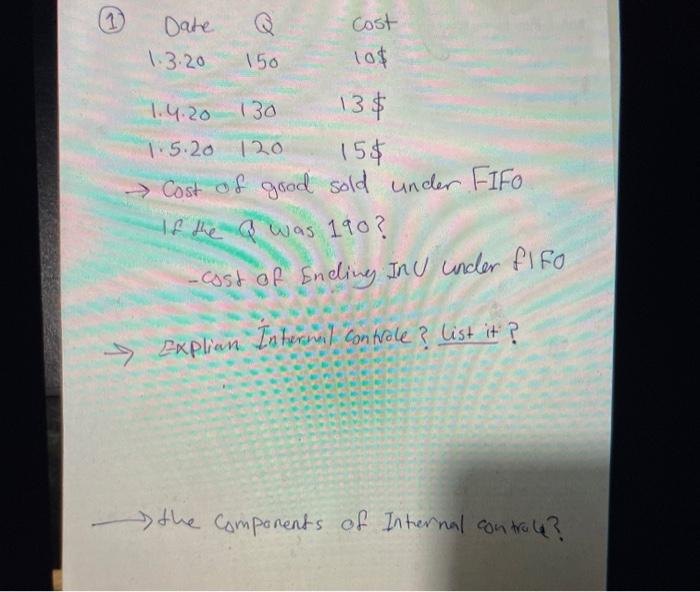 ① Date Q Cost
1.3.20 150 10$
1.4.20 130 13$
1.5.20 120 15$
→ Cost of good sold under FIFO
If the Q was 190?
- cost of Ending InV under fIFO
→ Explian Internal Controle? List it?
→ the components of Internal controle?